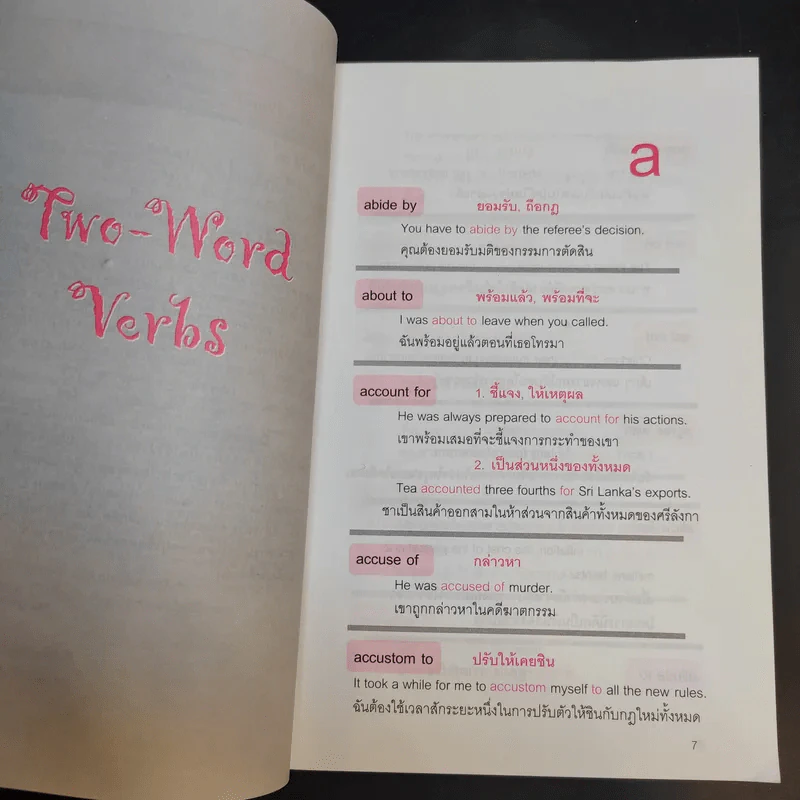 Two-Word
Verbs
a
abide by ยอมรับ, ถือกฎ
You have to abide by the referee's decision.
คุณต้องยอมรับมติของกรรมการตัดสิน
about to พร้อมแล้ว, พร้อมที่จะ
I was about to leave when you called.
ฉันพร้อมอยู่แล้วตอนที่เธอโทรมา
account for 1. ชี้แจง, ให้เหตุผล
He was always prepared to account for his actions.
เขาพร้อมเสมอที่จะชี้แจงการกระทำของเขา
2. เป็นส่วนหนึ่งของทั้งหมด
Tea accounted three fourths for Sri Lanka's exports.
ชาเป็นสินค้าออกสามในห้าส่วนจากสินค้าทั้งหมดของศรีลังกา
accuse of กล่าวหา
He was accused of murder.
เขาถูกกล่าวหาในคดีฆาตกรรม
accustom to ปรับให้เคยชิน
It took a while for me to accustom myself to all the new rules.
ฉันต้องใช้เวลาสักระยะหนึ่งในการปรับตัวให้ชินกับกฎใหม่ทั้งหมด
7